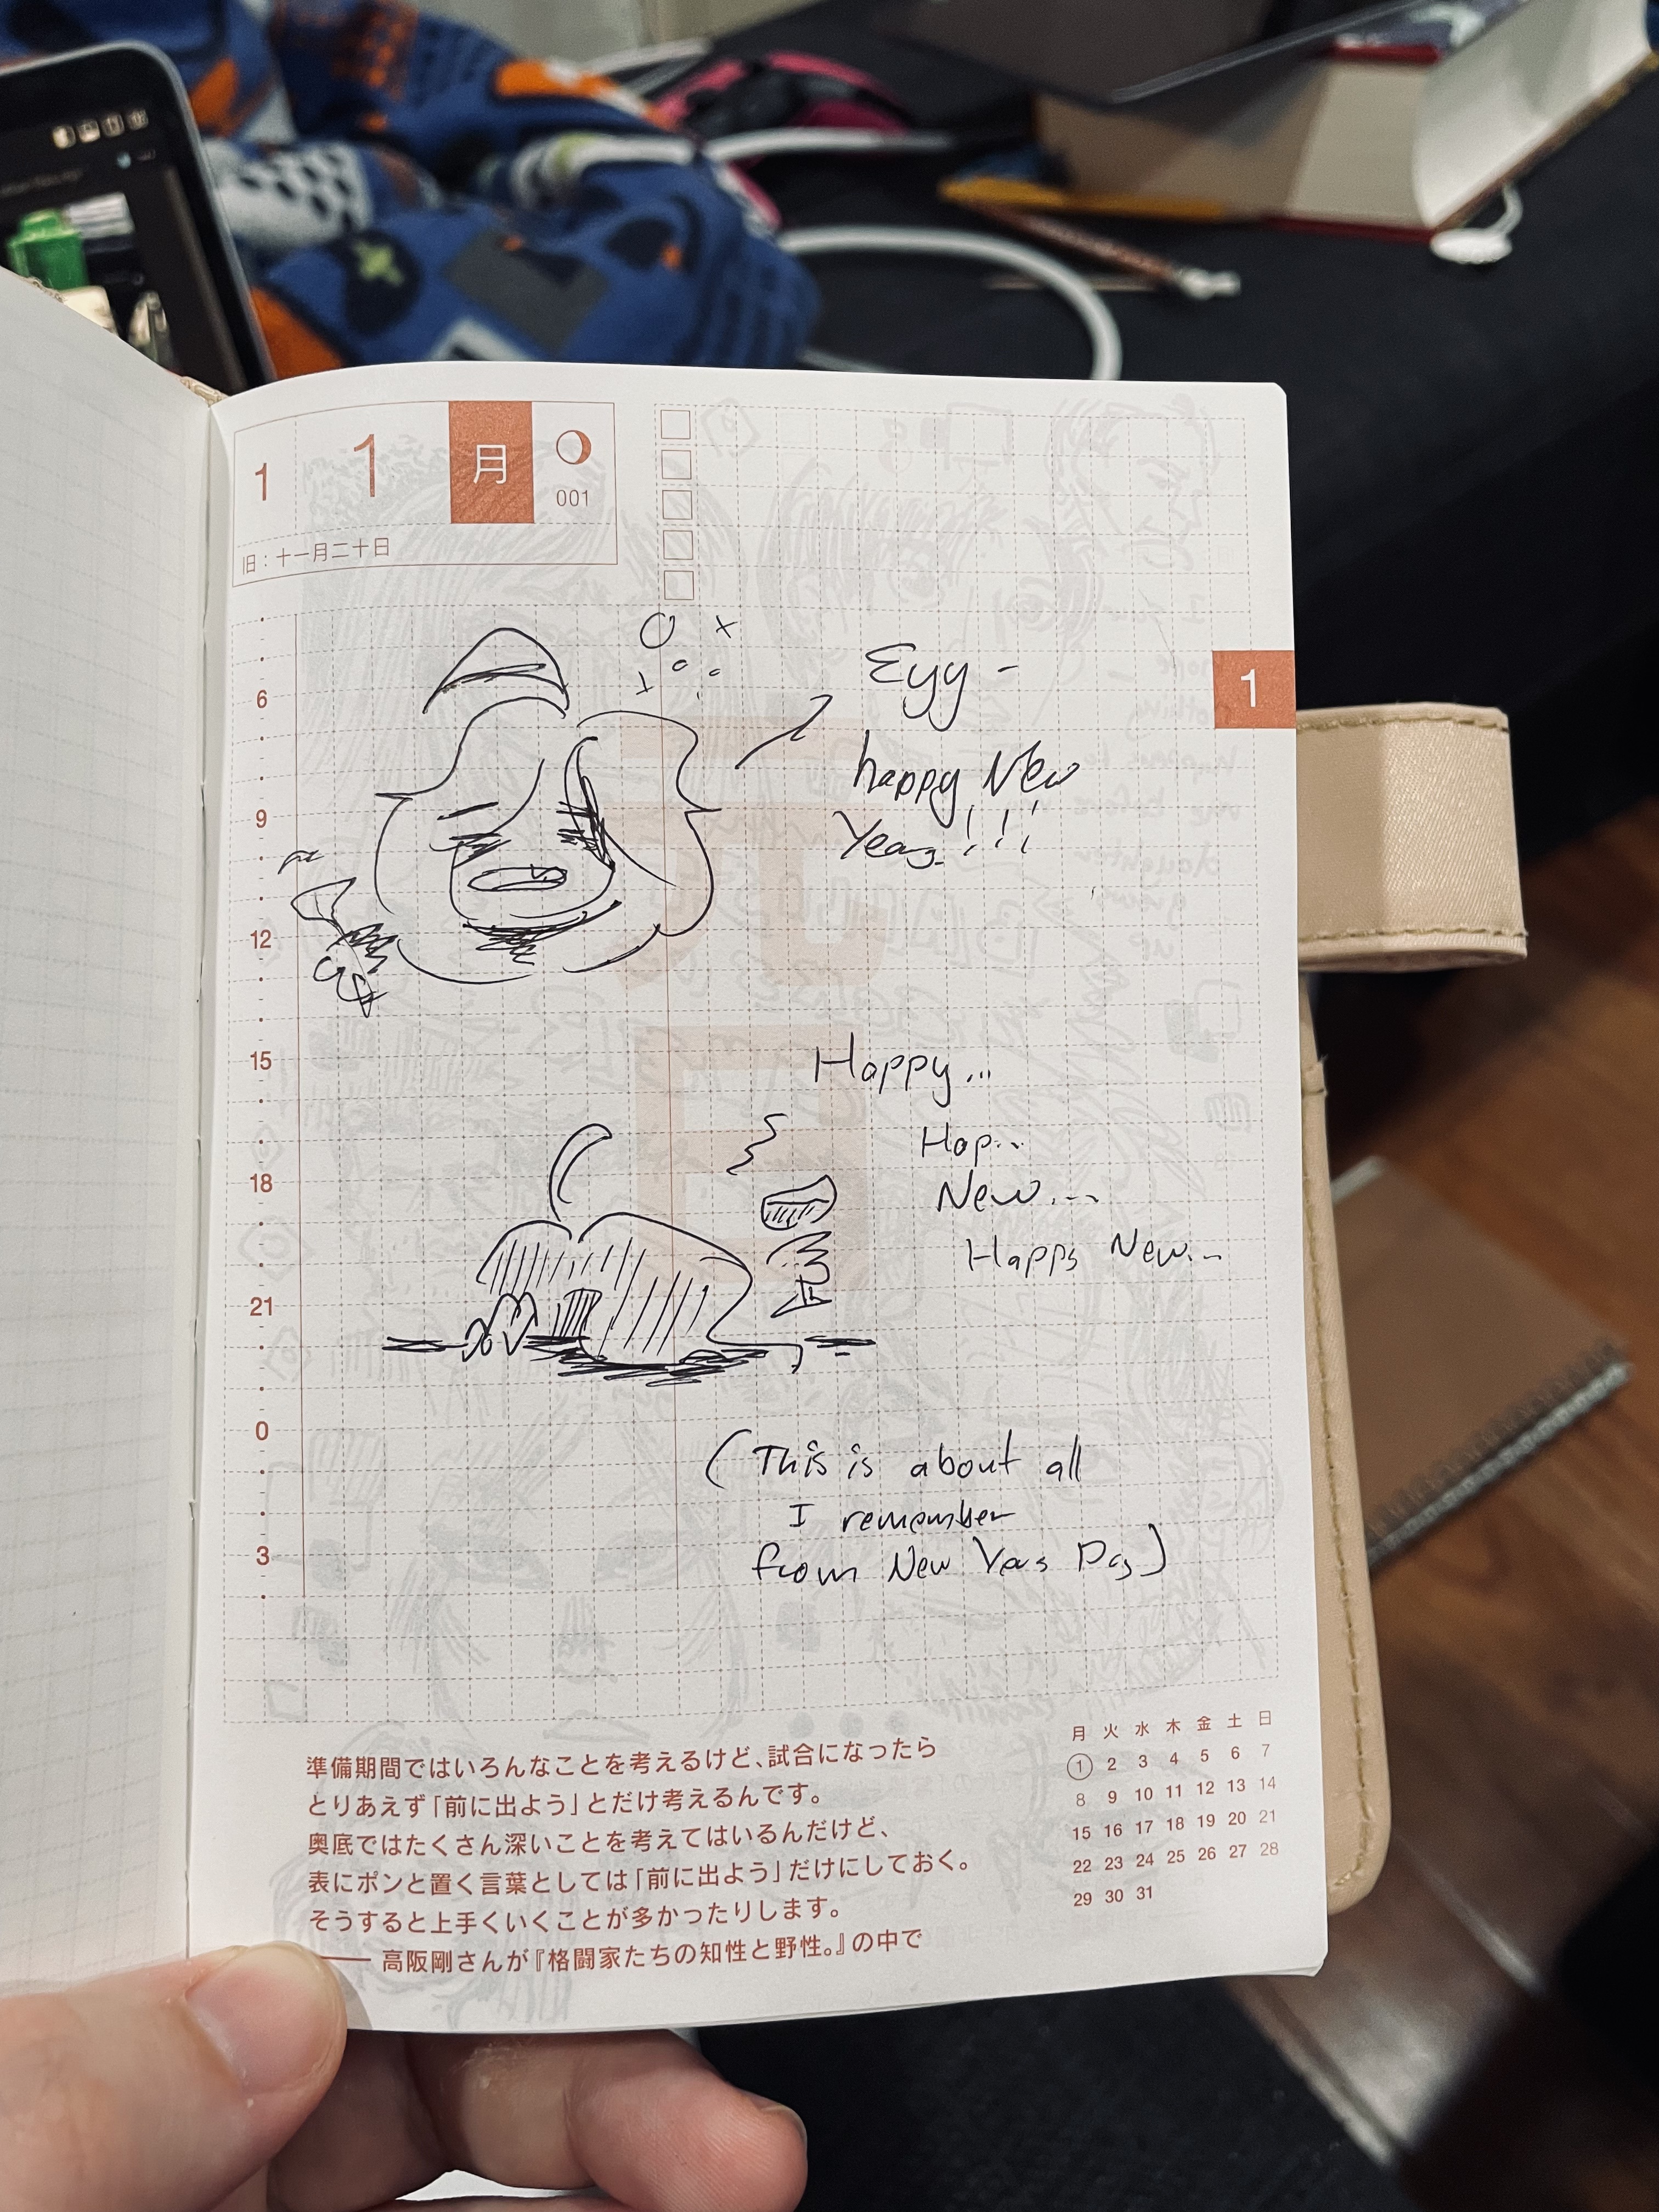 1 1 月
001
旧：十一月二十日
1
6
9
12
15
18
21
0
3
Eyy -
happy New
Year !!!
Happy...
Hap...
New....
Happy New...
(This is about all
I remember
from New Years Day)
元
日
準備期間ではいろんなことを考えるけど、試合になったら
とりあえず「前に出よう」とだけ考えるんです。
奥底ではたくさん深いことを考えてはいるんだけど、
表にポンと置く言葉としては「前に出よう」だけにしておく。
そうすると上手くいくことが多かったりします。
―― 高阪剛さんが『格闘家たちの知性と野性。』の中で
月 火 水 木 金 土 日
1 2 3 4 5 6 7
8 9 10 11 12 13 14
15 16 17 18 19 20 21
22 23 24 25 26 27 28
29 30 31